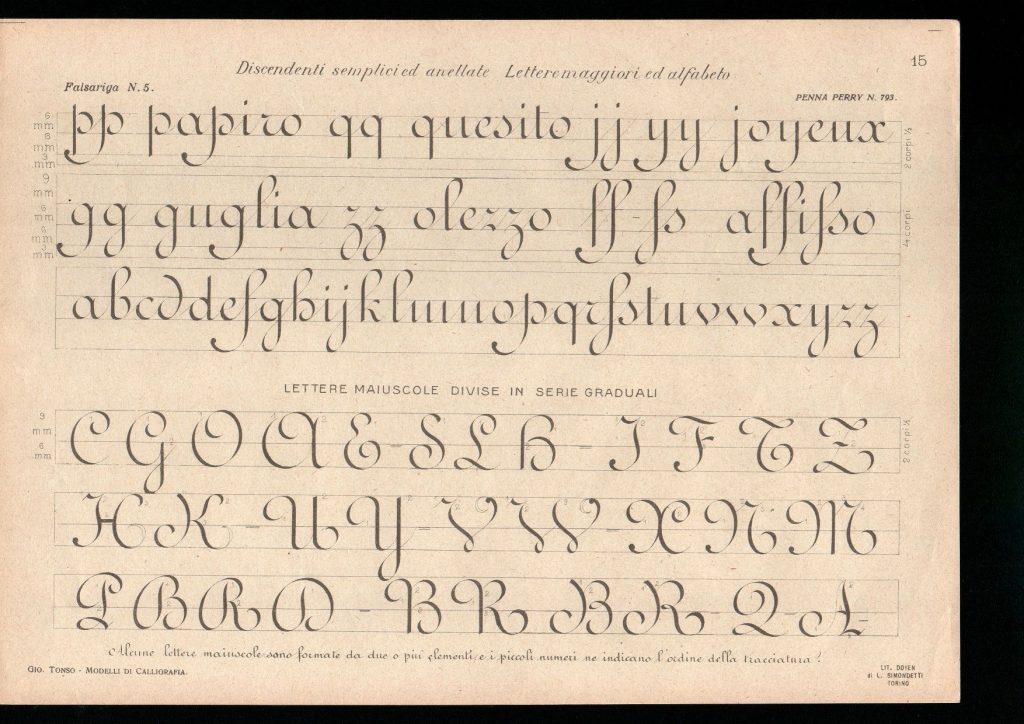 15
Discendenti semplici ed anellate Lettere maggiori ed alfabeto
Falsariga N. 5.
PENNA PERRY N. 793.
pp papiro qq quesito jj yy joyeux
gg guglia zz olezzo ff-ſs affiſso
abcddefghijklmnopqrſstuvwxyzz
LETTERE MAIUSCOLE DIVISE IN SERIE GRADUALI
C G O A E - S L H - I F T Z
H K - U Y - V W - X N M
P B R D - B R B R - Q - A
Alcune lettere maiuscole sono formate da due o più elementi, e i piccoli numeri ne indicano l'ordine della tracciatura.
GIO. TONSO - MODELLI DI CALLIGRAFIA.
LIT. DOYEN
di L. SIMONDETTI
TORINO